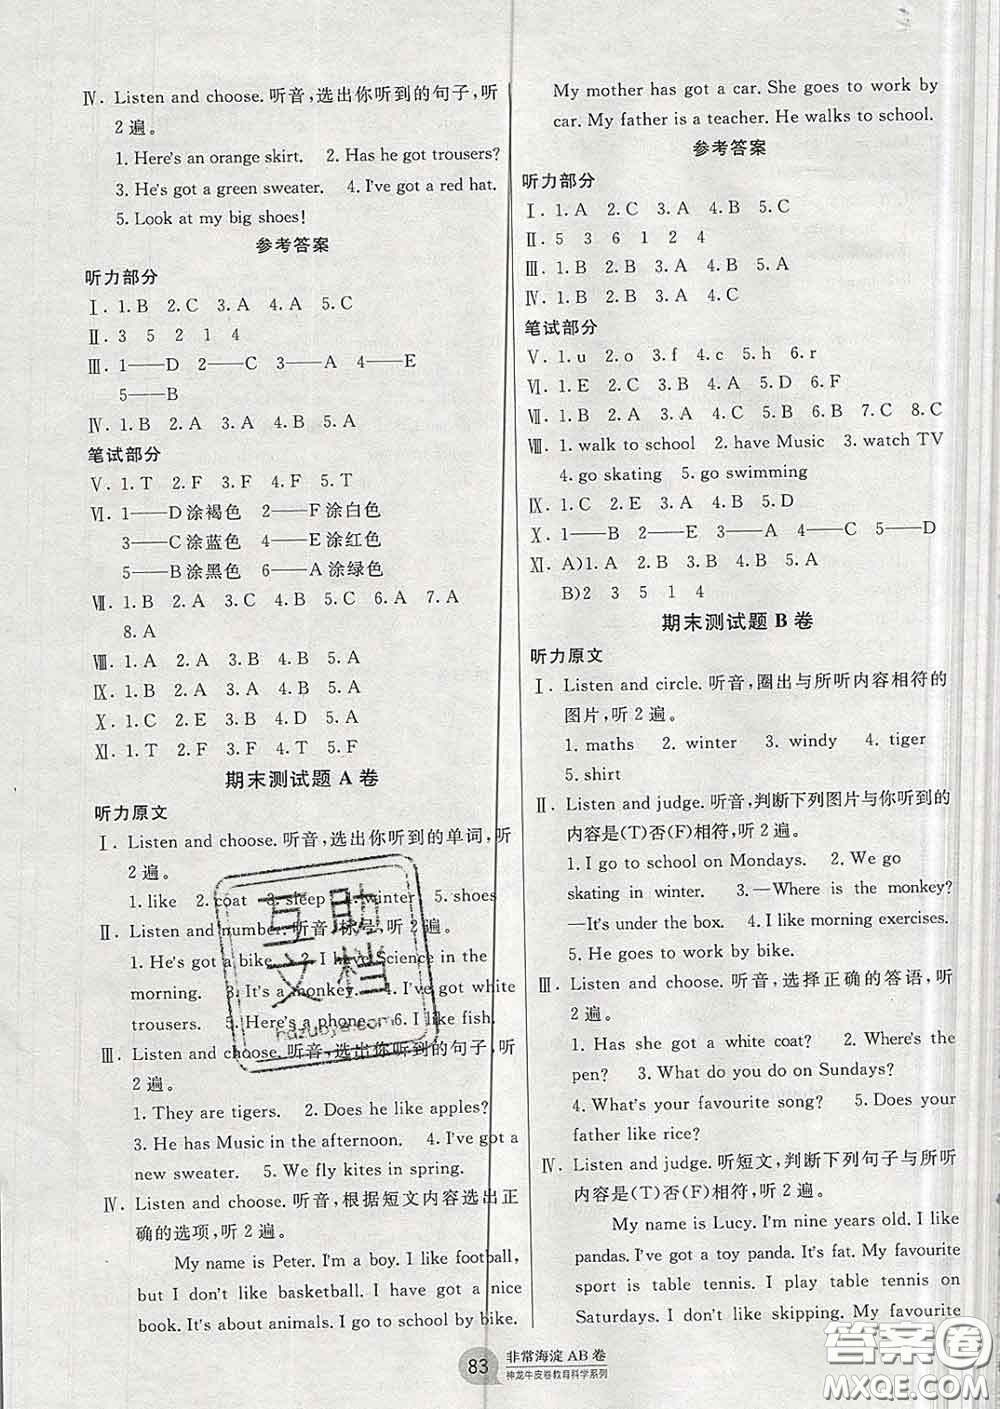 Ⅳ. Listen and choose. 听音,选出你听到的句子,听
2遍。
1. Here's an orange skirt.  2. Has he got trousers?
3. He's got a green sweater.  4. I've got a red hat.
5. Look at my big shoes!
参考答案
听力部分
Ⅰ. 1. B  2. C  3. A  4. A  5. C
Ⅱ. 3  5  2  1  4
Ⅲ. 1——D  2——C  3——A  4——E
5——B
Ⅳ. 1. B  2. A  3. A  4. B  5. A
笔试部分
Ⅴ. 1. T  2. F  3. F  4. F  5. T
Ⅵ. 1——D涂褐色  2——F涂白色
3——C涂蓝色  4——E涂红色
5——B涂黑色  6——A涂绿色
Ⅶ. 1. B  2. A  3. C  4. B  5. C  6. A  7. A
8. A
Ⅷ. 1. A  2. A  3. B  4. B  5. A
Ⅸ. 1. C  2. B  3. A  4. B  5. A
Ⅹ. 1. C  2. E  3. B  4. D  5. A
Ⅺ. 1. T  2. F  3. F  4. T  5. F
期末测试题 A 卷
听力原文
Ⅰ. Listen and choose. 听音,选出你听到的单词,听
2遍。
1. like  2. coat  3. sleep  4. winter  5. shoes
Ⅱ. Listen and number. 听音,标号,听2遍。
1. He's got a bike.  2. I have Science in the
morning.  3. It's a monkey.  4. I've got white
trousers.  5. Here's a phone.  6. I like fish.
Ⅲ. Listen and choose. 听音,选出你听到的句子,听
2遍。
1. They are tigers.  2. Does he like apples?
3. He has Music in the afternoon.  4. I've got a
new sweater.  5. We fly kites in spring.
Ⅳ. Listen and choose. 听音,根据短文内容选出正
确的选项,听2遍。
My name is Peter. I'm a boy. I like football,
but I don't like basketball. I have got a nice
book. It's about animals. I go to school by bike.
My mother has got a car. She goes to work by
car. My father is a teacher. He walks to school.
参考答案
听力部分
Ⅰ. 1. A  2. C  3. A  4. B  5. C
Ⅱ. 5  3  6  1  2  4
Ⅲ. 1. B  2. B  3. A  4. B  5. A
Ⅳ. 1. B  2. A  3. C  4. B  5. A
笔试部分
Ⅴ. 1. u  2. o  3. f  4. c  5. h  6. r
Ⅵ. 1. E  2. C  3. B  4. A  5. D  6. F
Ⅶ. 1. B  2. B  3. A  4. C  5. B  6. B  7. C  8. C
Ⅷ. 1. walk to school  2. have Music  3. watch TV
4. go skating  5. go swimming
Ⅸ. 1. C  2. E  3. A  4. B  5. D
Ⅹ. 1——B  2——E  3——A  4——C  5——D
Ⅺ. A)1. A  2. B  3. B  4. B  5. A
B)2  3  5  1  4
期末测试题 B 卷
听力原文
Ⅰ. Listen and circle. 听音,圈出与所听内容相符的
图片,听2遍。
1. maths  2. winter  3. windy  4. tiger
5. shirt
Ⅱ. Listen and judge. 听音,判断下列图片与你听到的
内容是(T)否(F)相符,听2遍。
1. I go to school on Mondays.  2. We go
skating in winter.  3. —Where is the monkey?
—It's under the box.  4. I like morning exercises.
5. He goes to work by bike.
Ⅲ. Listen and choose. 听音,选择正确的答语,听
2遍。
1. Has she got a white coat?  2. Where's the
pen?  3. What do you do on Sundays?
4. What's your favourite song?  5. Does your
father like rice?
Ⅳ. Listen and judge. 听短文,判断下列句子与所听
内容是(T)否(F)相符,听2遍。
My name is Lucy. I'm nine years old. I like
pandas. I've got a toy panda. It's fat. My favourite
sport is table tennis. I play table tennis on
Saturdays. I don't like skipping. My favourite
83
非常海淀 AB 卷
神龙牛皮卷教育科学系列
互助
文档
hdzuoye.com
答案圈
MXQE.COM